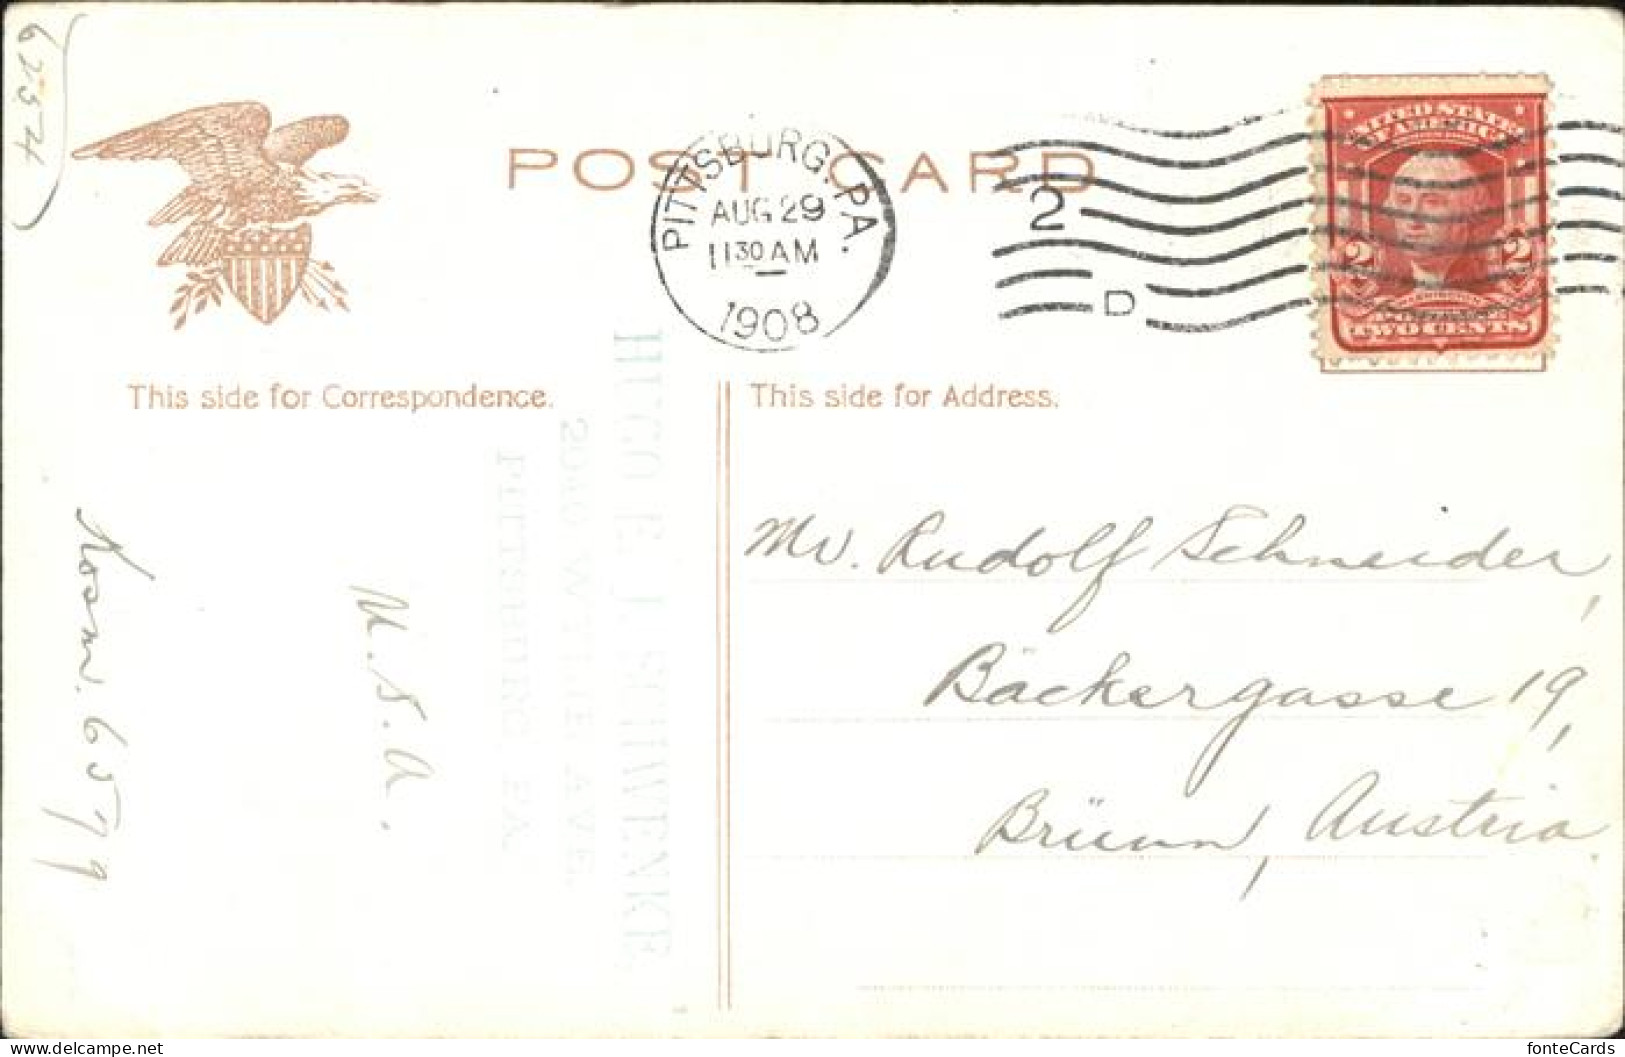 6254
POST CARD
PITTSBURG, PA.
AUG 29
1130 AM
1908
2
D
UNITED STATES
OF AMERICA
2 2
WASHINGTON
TWO CENTS
This side for Correspondence.
This side for Address.
HUGO E. J. SCHWENKE,
2940 WYLIE AVE.
PITTSBURG, PA.
Kosm. 6579
U.S.A.
Mr. Rudolf Schneider,
Bäckergasse 19,
Brünn, Austria.
fonteCards